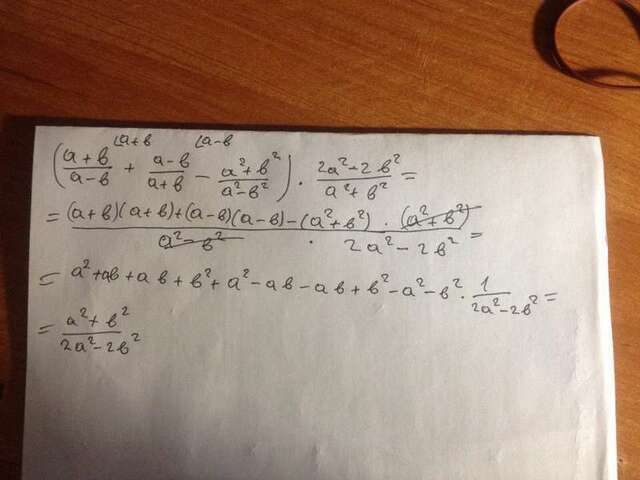 (a+b
(a-b
(a+b/a-b + a-b/a+b - a²+b²/a²-b²) · 2a²-2b²/a²+b² =
= (a+b)(a+b)+(a-b)(a-b)-(a²+b²) · (a²+b²)/a²-b² · 2a²-2b² =
= a²+ab+ab+b²+a²-ab-ab+b²-a²-b² · 1/2a²-2b² =
= a²+b²/2a²-2b²